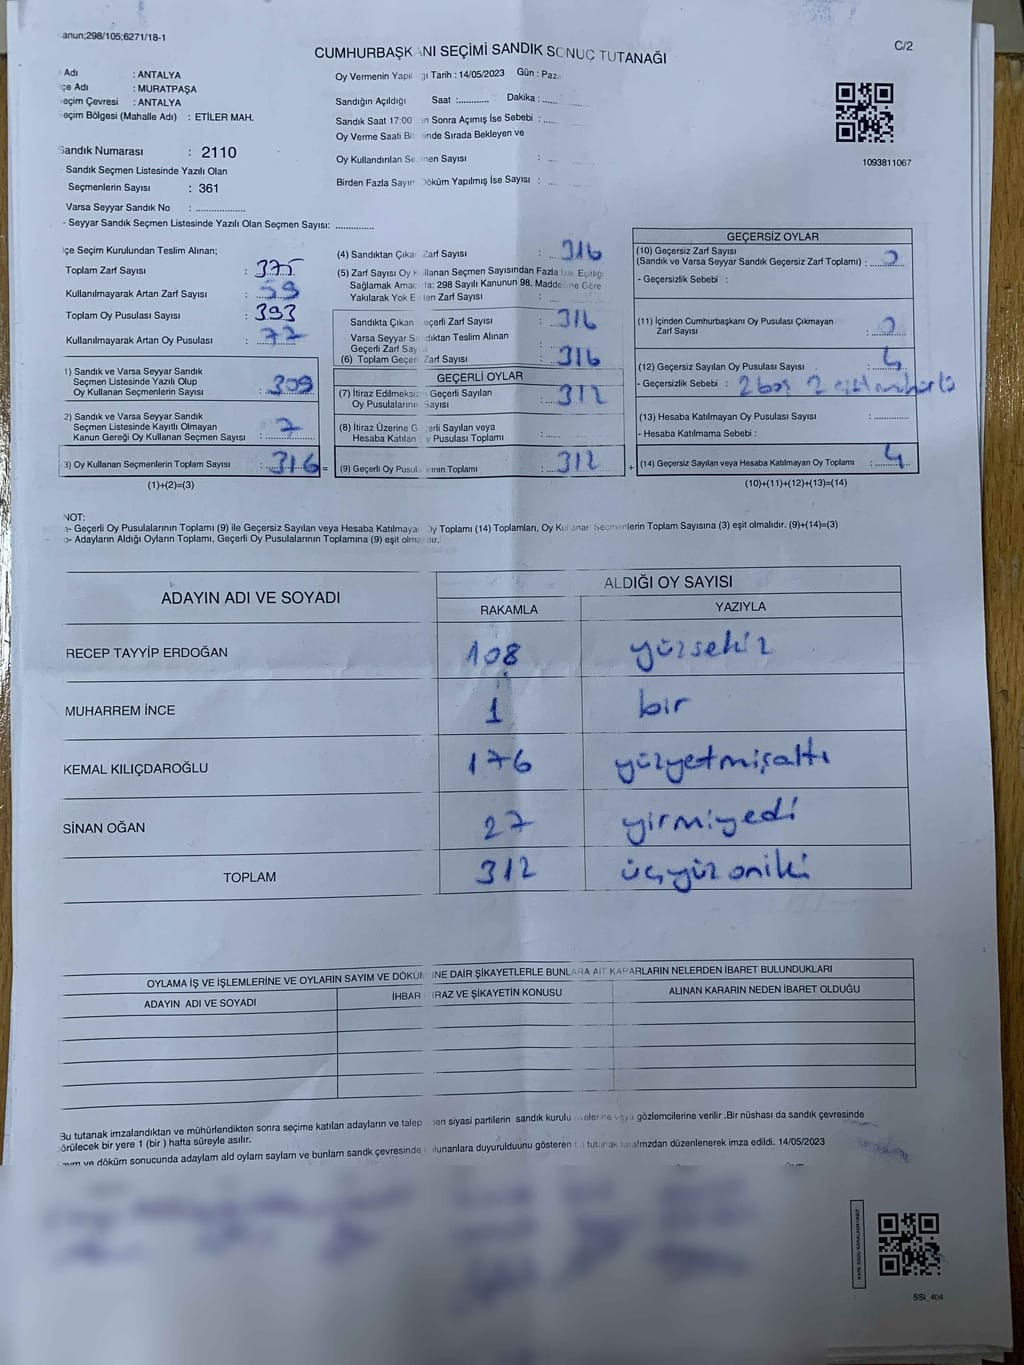 anun;298/105;6271/18-1
C/2
CUMHURBAŞKANI SEÇİMİ SANDIK SONUÇ TUTANAĞI
Adı : ANTALYA
çe Adı : MURATPAŞA
eçim Çevresi : ANTALYA
eçim Bölgesi (Mahalle Adı) : ETİLER MAH.
Sandık Numarası : 2110
Sandık Seçmen Listesinde Yazılı Olan
Seçmenlerin Sayısı : 361
Varsa Seyyar Sandık No : ...................
- Seyyar Sandık Seçmen Listesinde Yazılı Olan Seçmen Sayısı: ..............
Oy Vermenin Yapıl ğı Tarih : 14/05/2023 Gün : Paz
Sandığın Açıldığı Saat :........... Dakika :.....
Sandık Saat 17:00 n Sonra Açımış İse Sebebi : ....
Oy Verme Saati Bi inde Sırada Bekleyen ve
Oy Kullandırılan Se men Sayısı : ....
Birden Fazla Sayım Döküm Yapılmış İse Sayısı : ....
1093811067
çe Seçim Kurulundan Teslim Alınan;
Toplam Zarf Sayısı : 375
Kullanılmayarak Artan Zarf Sayısı : 59
Toplam Oy Pusulası Sayısı : 393
Kullanılmayarak Artan Oy Pusulası : 77
1) Sandık ve Varsa Seyyar Sandık
Seçmen Listesinde Yazılı Olup
Oy Kullanan Seçmenlerin Sayısı : 309
2) Sandık ve Varsa Seyyar Sandık
Seçmen Listesinde Kayıtlı Olmayan
Kanun Gereği Oy Kullanan Seçmen Sayısı : 7
3) Oy Kullanan Seçmenlerin Toplam Sayısı : 316 =
(1)+(2)=(3)
(4) Sandıktan Çıka Zarf Sayısı : 316
(5) Zarf Sayısı Oy Kullanan Seçmen Sayısından Fazla İse, Eşitliği
Sağlamak Amac la; 298 Sayılı Kanunun 98. Maddesine Göre
Yakılarak Yok E len Zarf Sayısı : ....
Sandıkta Çıkan eçerli Zarf Sayısı : 316
Varsa Seyyar S dıktan Teslim Alınan
Geçerli Zarf Say
(6) Toplam Geçer Zarf Sayısı : 316
GEÇERLİ OYLAR
(7) İtiraz Edilmeksi Geçerli Sayılan
Oy Pusulalarını Sayısı : 312
(8) İtiraz Üzerine G erli Sayılan veya
Hesaba Katılan y Pusulası Toplamı : .....
(9) Geçerli Oy Pusul rının Toplamı : 312 +
GEÇERSİZ OYLAR
(10) Geçersiz Zarf Sayısı
(Sandık ve Varsa Seyyar Sandık Geçersiz Zarf Toplamı) : 0
- Geçersizlik Sebebi :
(11) İçinden Cumhurbaşkanı Oy Pusulası Çıkmayan
Zarf Sayısı : 0
(12) Geçersiz Sayılan Oy Pusulası Sayısı : 4
- Geçersizlik Sebebi : 2 boş 2
(13) Hesaba Katılmayan Oy Pusulası Sayısı : ............
- Hesaba Katılmama Sebebi :
(14) Geçersiz Sayılan veya Hesaba Katılmayan Oy Toplamı : 4
(10)+(11)+(12)+(13)=(14)
NOT:
a- Geçerli Oy Pusulalarının Toplamı (9) ile Geçersiz Sayılan veya Hesaba Katılmaya Oy Toplamı (14) Toplamları, Oy Kullanan Seçmenlerin Toplam Sayısına (3) eşit olmalıdır. (9)+(14)=(3)
b- Adayların Aldığı Oyların Toplamı, Geçerli Oy Pusulalarının Toplamına (9) eşit olmalıdır.
ADAYIN ADI VE SOYADI ALDIĞI OY SAYISI
RAKAMLA YAZIYLA
RECEP TAYYİP ERDOĞAN 108 yüzsekiz
MUHARREM İNCE 1 bir
KEMAL KILIÇDAROĞLU 176 yüzyetmişaltı
SİNAN OĞAN 27 yirmiyedi
TOPLAM 312 üçyüz oniki
OYLAMA İŞ VE İŞLEMLERİNE VE OYLARIN SAYIM VE DÖKÜM İNE DAİR ŞİKAYETLERLE BUNLARA AİT KARARLARIN NELERDEN İBARET BULUNDUKLARI
ADAYIN ADI VE SOYADI İHBAR İRAZ VE ŞİKAYETİN KONUSU ALINAN KARARIN NEDEN İBARET OLDUĞU
Bu tutanak imzalandıktan ve mühürlendikten sonra seçime katılan adayların ve talep den siyasi partilerin sandık kurulu üyelerine veya gözlemcilerine verilir .Bir nüshası da sandık çevresinde
örülecek bir yere 1 (bir ) hafta süreyle asılır.
ayım ve döküm sonucunda adaylam ald oylarn saylam ve bunlarn sandk çevresinde lunanlara duyurulduunu gösteren tutanak tarafmzdan düzenlenerek imza edildi. 14/05/2023
SSİ_404